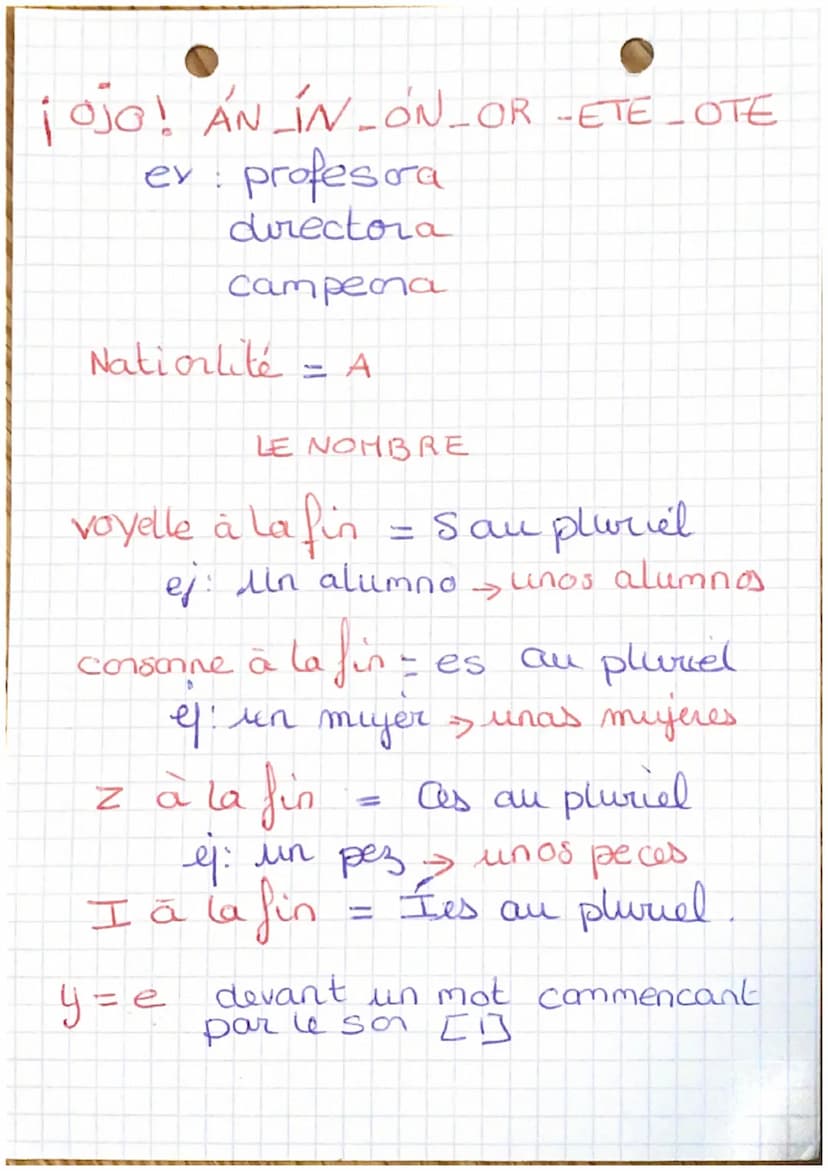 ¡ ojo! ÁN _ÍN _ ÓN _ OR - ETE _ OTE
ex : profesora
directora
campeona
Nationlité = A
LE NOMBRE
voyelle à la fin = s au pluriel
ej: Un alumno → unos alumnos
consonne à la fin = es au pluriel
ej: un mujer → unas mujeres
z à la fin = Ces au pluriel
ej: un pez → unos peces
I à la fin = Íes au pluriel.
y = e devant un mot commencant
par le son [I]